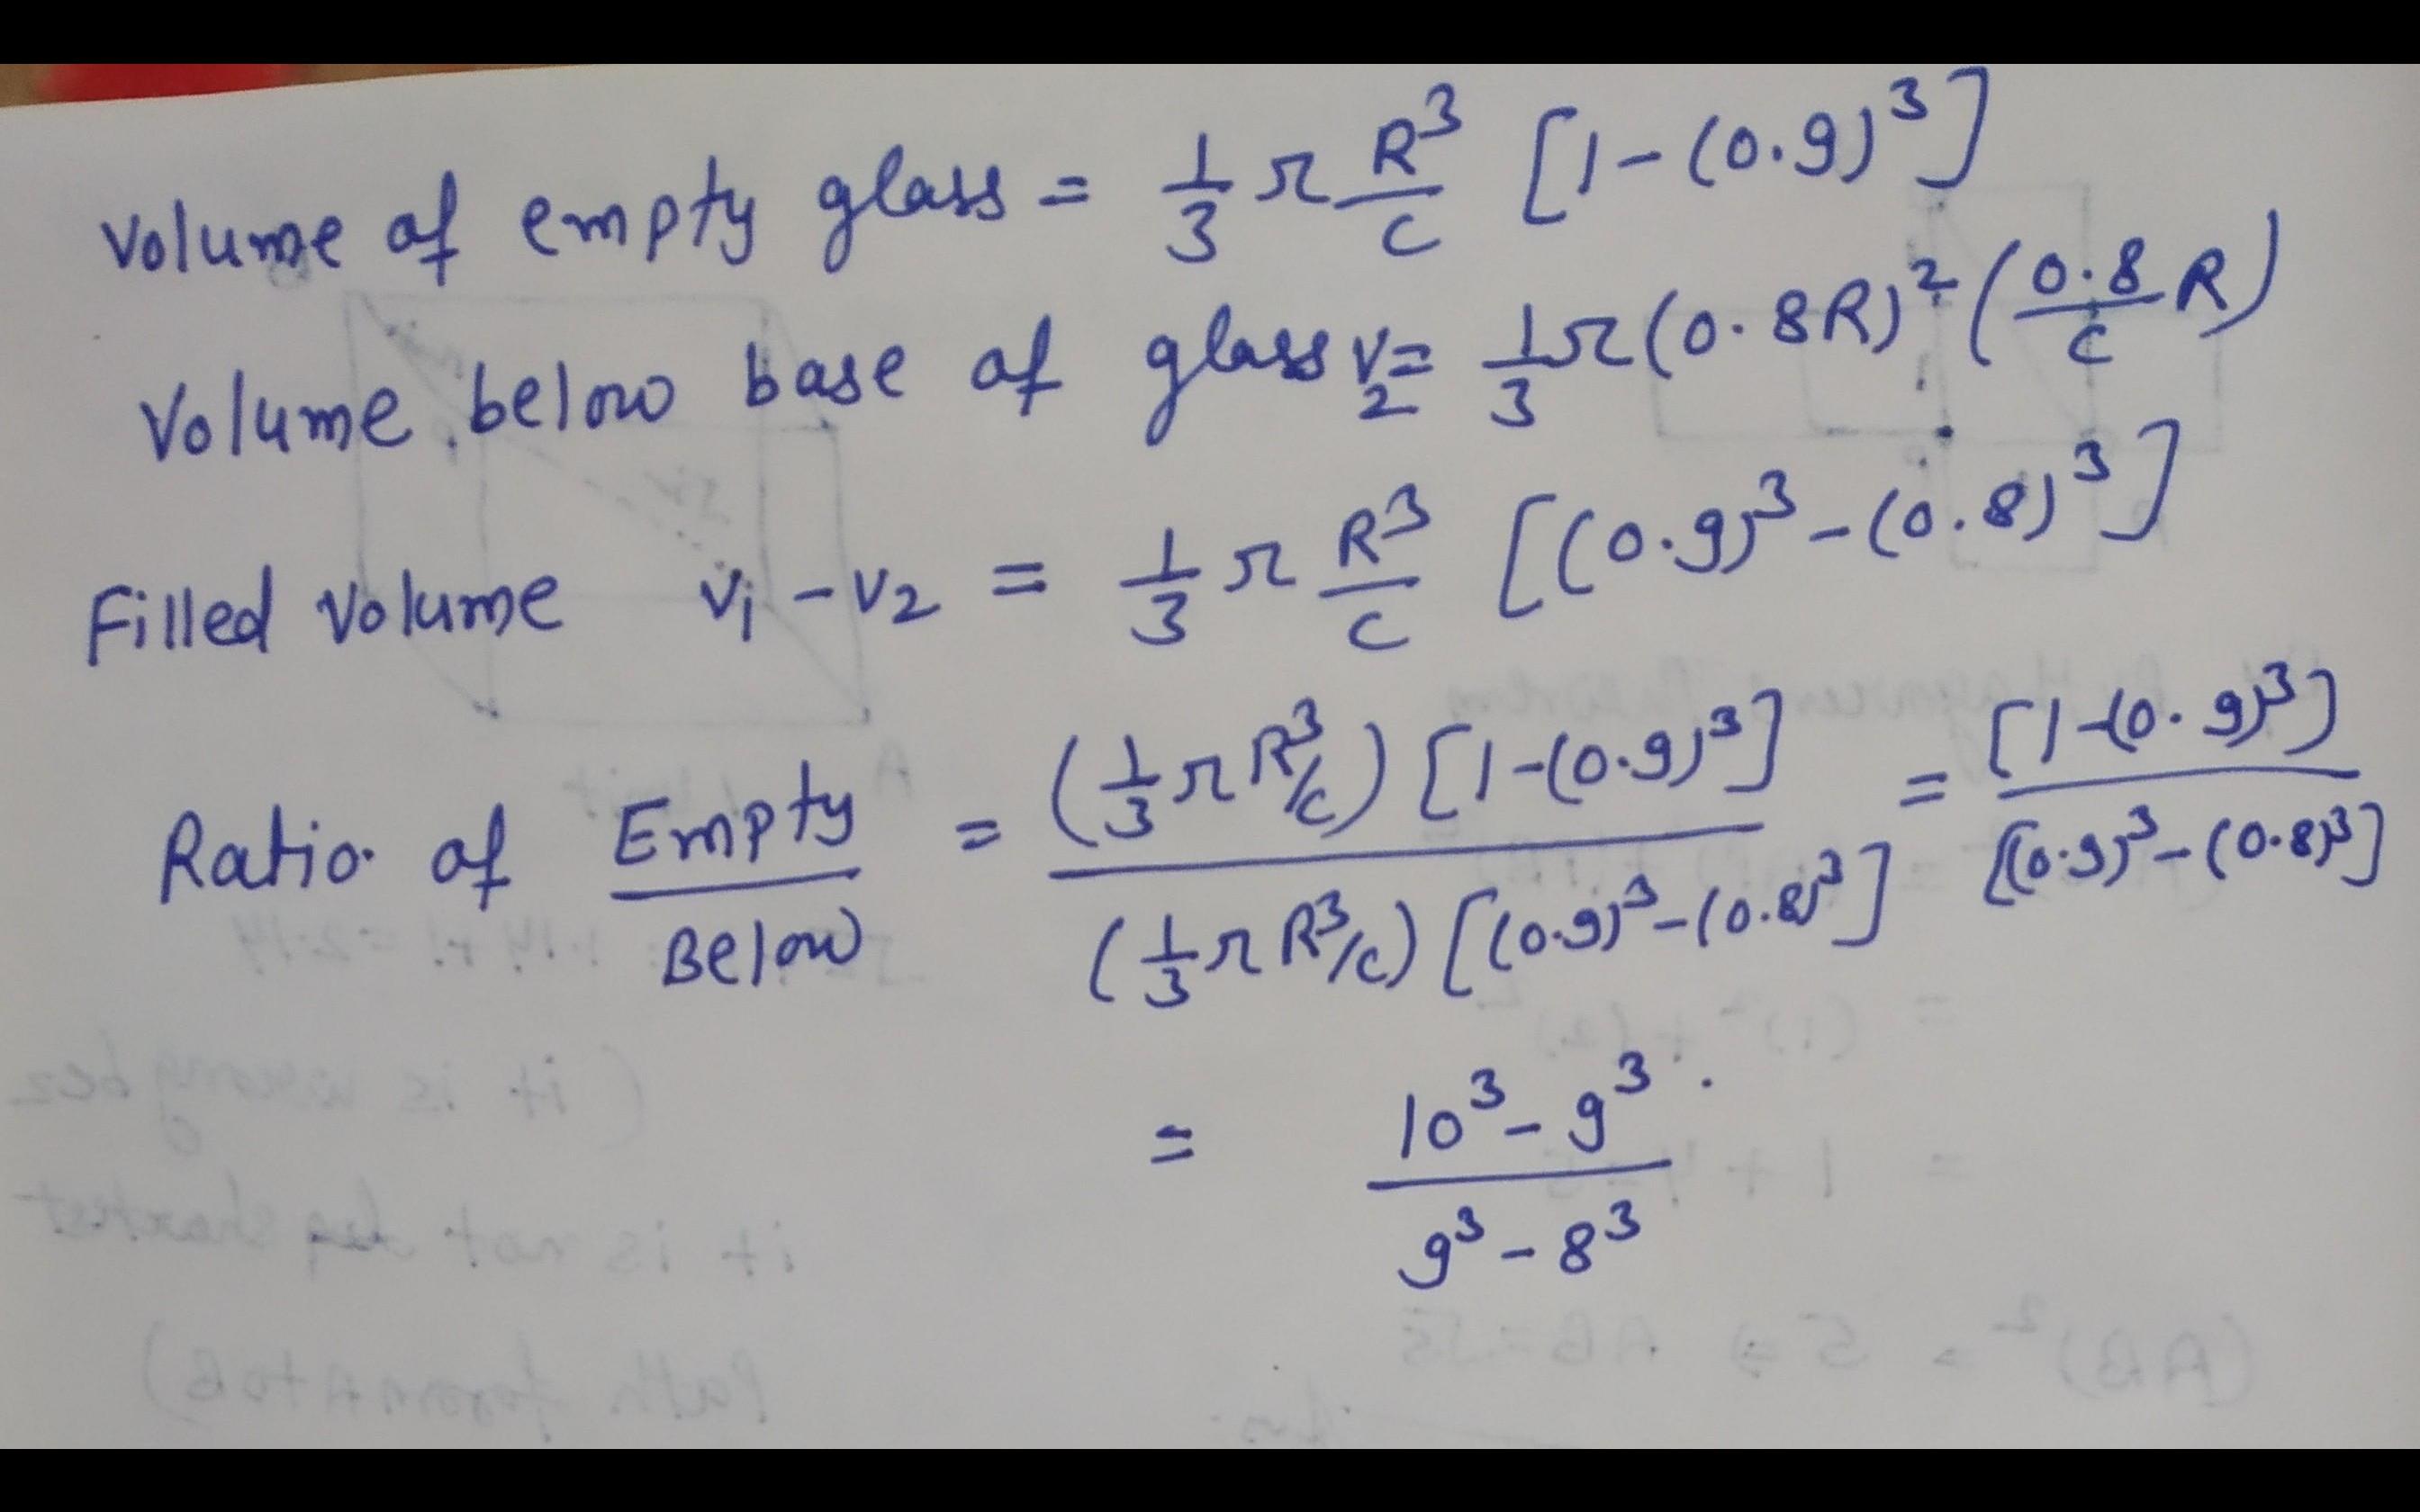 Volume of empty glass = 1/3 π R³/c [1-(0.9)³]
Volume below base of glass V₂ = 1/3 π(0.8R)² (0.8/c R)
Filled Volume V₁ - V₂ = 1/3 π R³/c [(0.9)³-(0.8)³]
Ratio of Empty/Below = (1/3 π R³/c) [1-(0.9)³] / (1/3 π R³/c) [(0.9)³-(0.8)³] = [1-(0.9)³] / [(0.9)³-(0.8)³]
= 10³-9³ / 9³-8³